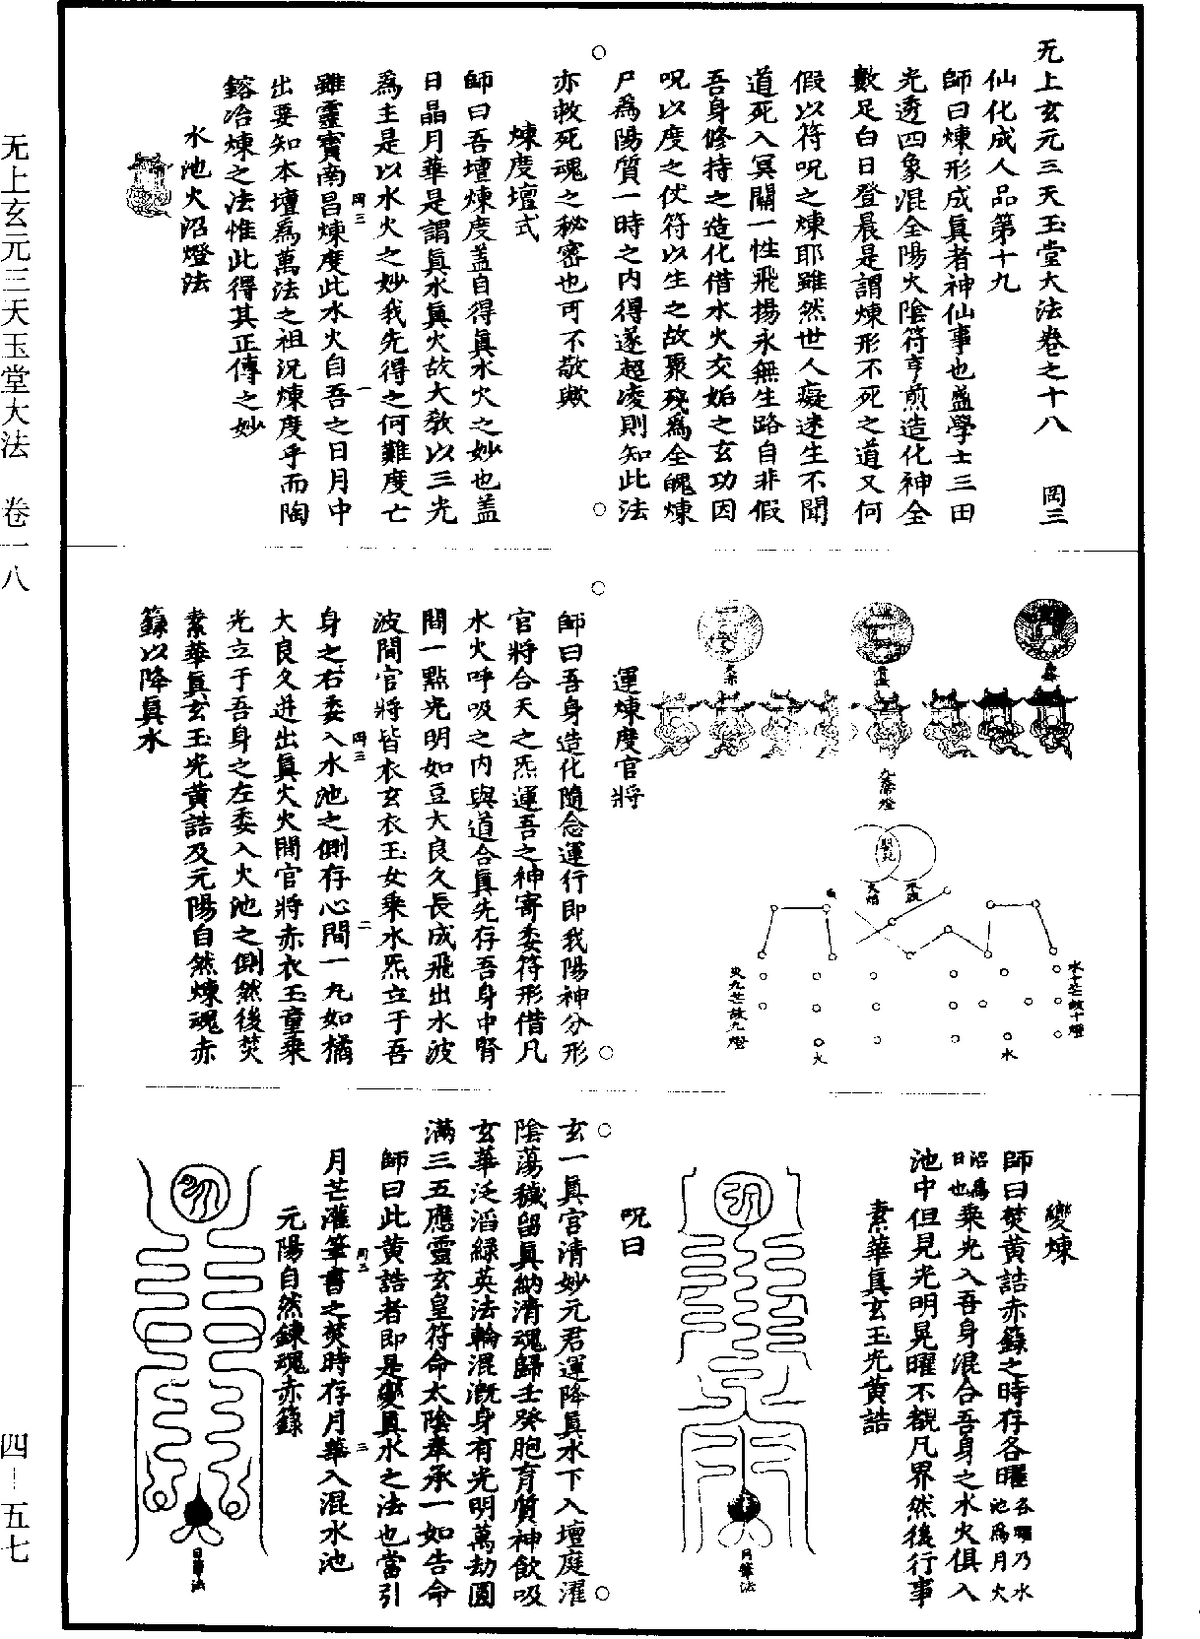 无上玄元三天玉堂大法卷之十八　岡三
仙化成人品第十九
師曰煉形成眞者神仙事也蓋學士三田
光透四象混全陽火陰符亨煎造化神全
數足白日登晨是謂煉形不死之道又何
假以符呪之煉耶雖然世人癡迷生不聞
道死入冥關一性飛揚永無生路自非假
吾身修持之造化借水火交姤之玄功因
呪以度之伏符以生之故聚殘爲全魄煉
尸爲陽質一時之内得遂超凌則知此法
亦救死魂之秘密也可不敬歟
煉度壇式
師曰吾壇煉度蓋自得眞水火之妙也蓋
日晶月華是謂眞水眞火故大教以三光
爲主是以水火之妙我先得之何難度亡
岡三　一
雖靈寶南昌煉度此水火自吾之日月中
出要知本壇爲萬法之祖況煉度乎而陶
鎔冶煉之法惟此得其正傳之妙
水池火沼燈法
九帝燈
水池
火沼
水十芒故十燈
火九芒故九燈
水
火
運煉度官將
師曰吾身造化隨念運行即我陽神分形
官將合天之炁運吾之神寄委符形借凡
水火呼吸之内與道合眞先存吾身中腎
間一點光明如豆大良久長成飛出水波
波間官將皆衣玄衣玉女乘水炁立于吾
岡三　二
身之右委入水池之側存心間一九如橘
大良久迸出眞火火間官將赤衣玉童乘
光立于吾身之左委入火池之側然後焚
素華眞玄玉光黄誥及元陽自然煉魂赤
籙以降眞水
變煉
師曰焚黄誥赤籙之時存各曜各曜乃水池爲月火
沼爲日也乘光入吾身混合吾身之水火俱入
池中但見光明晃曜不覩凡界然後行事
素華眞玄玉光黄誥
月篆法
呪曰
玄一眞官清妙元君運降眞水下入壇庭濯
陰蕩穢留眞納清魂歸壬癸胞育質神飲吸
玄華泛滔綠英法輪混溉身有光明萬劫圓
滿三五應靈玄皇符命太陰奉承一如告命
師曰此黄誥者即是變眞水之法也當引
岡三　三
月芒灌筆書之焚時存月華入混水池
元陽自然鍊魂赤籙
日篆法
无上玄元三天玉堂大法　卷一八
四—五七